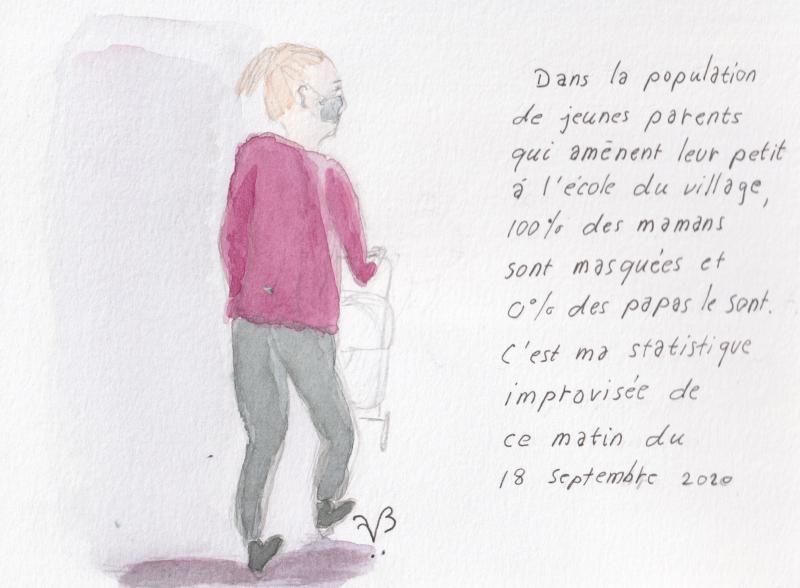 Dans la population
de jeunes parents
qui amènent leur petit
à l'école du village,
100% des mamans
sont masquées et
0% des papas le sont.
C'est ma statistique
improvisée de
ce matin du
18 septembre 2020